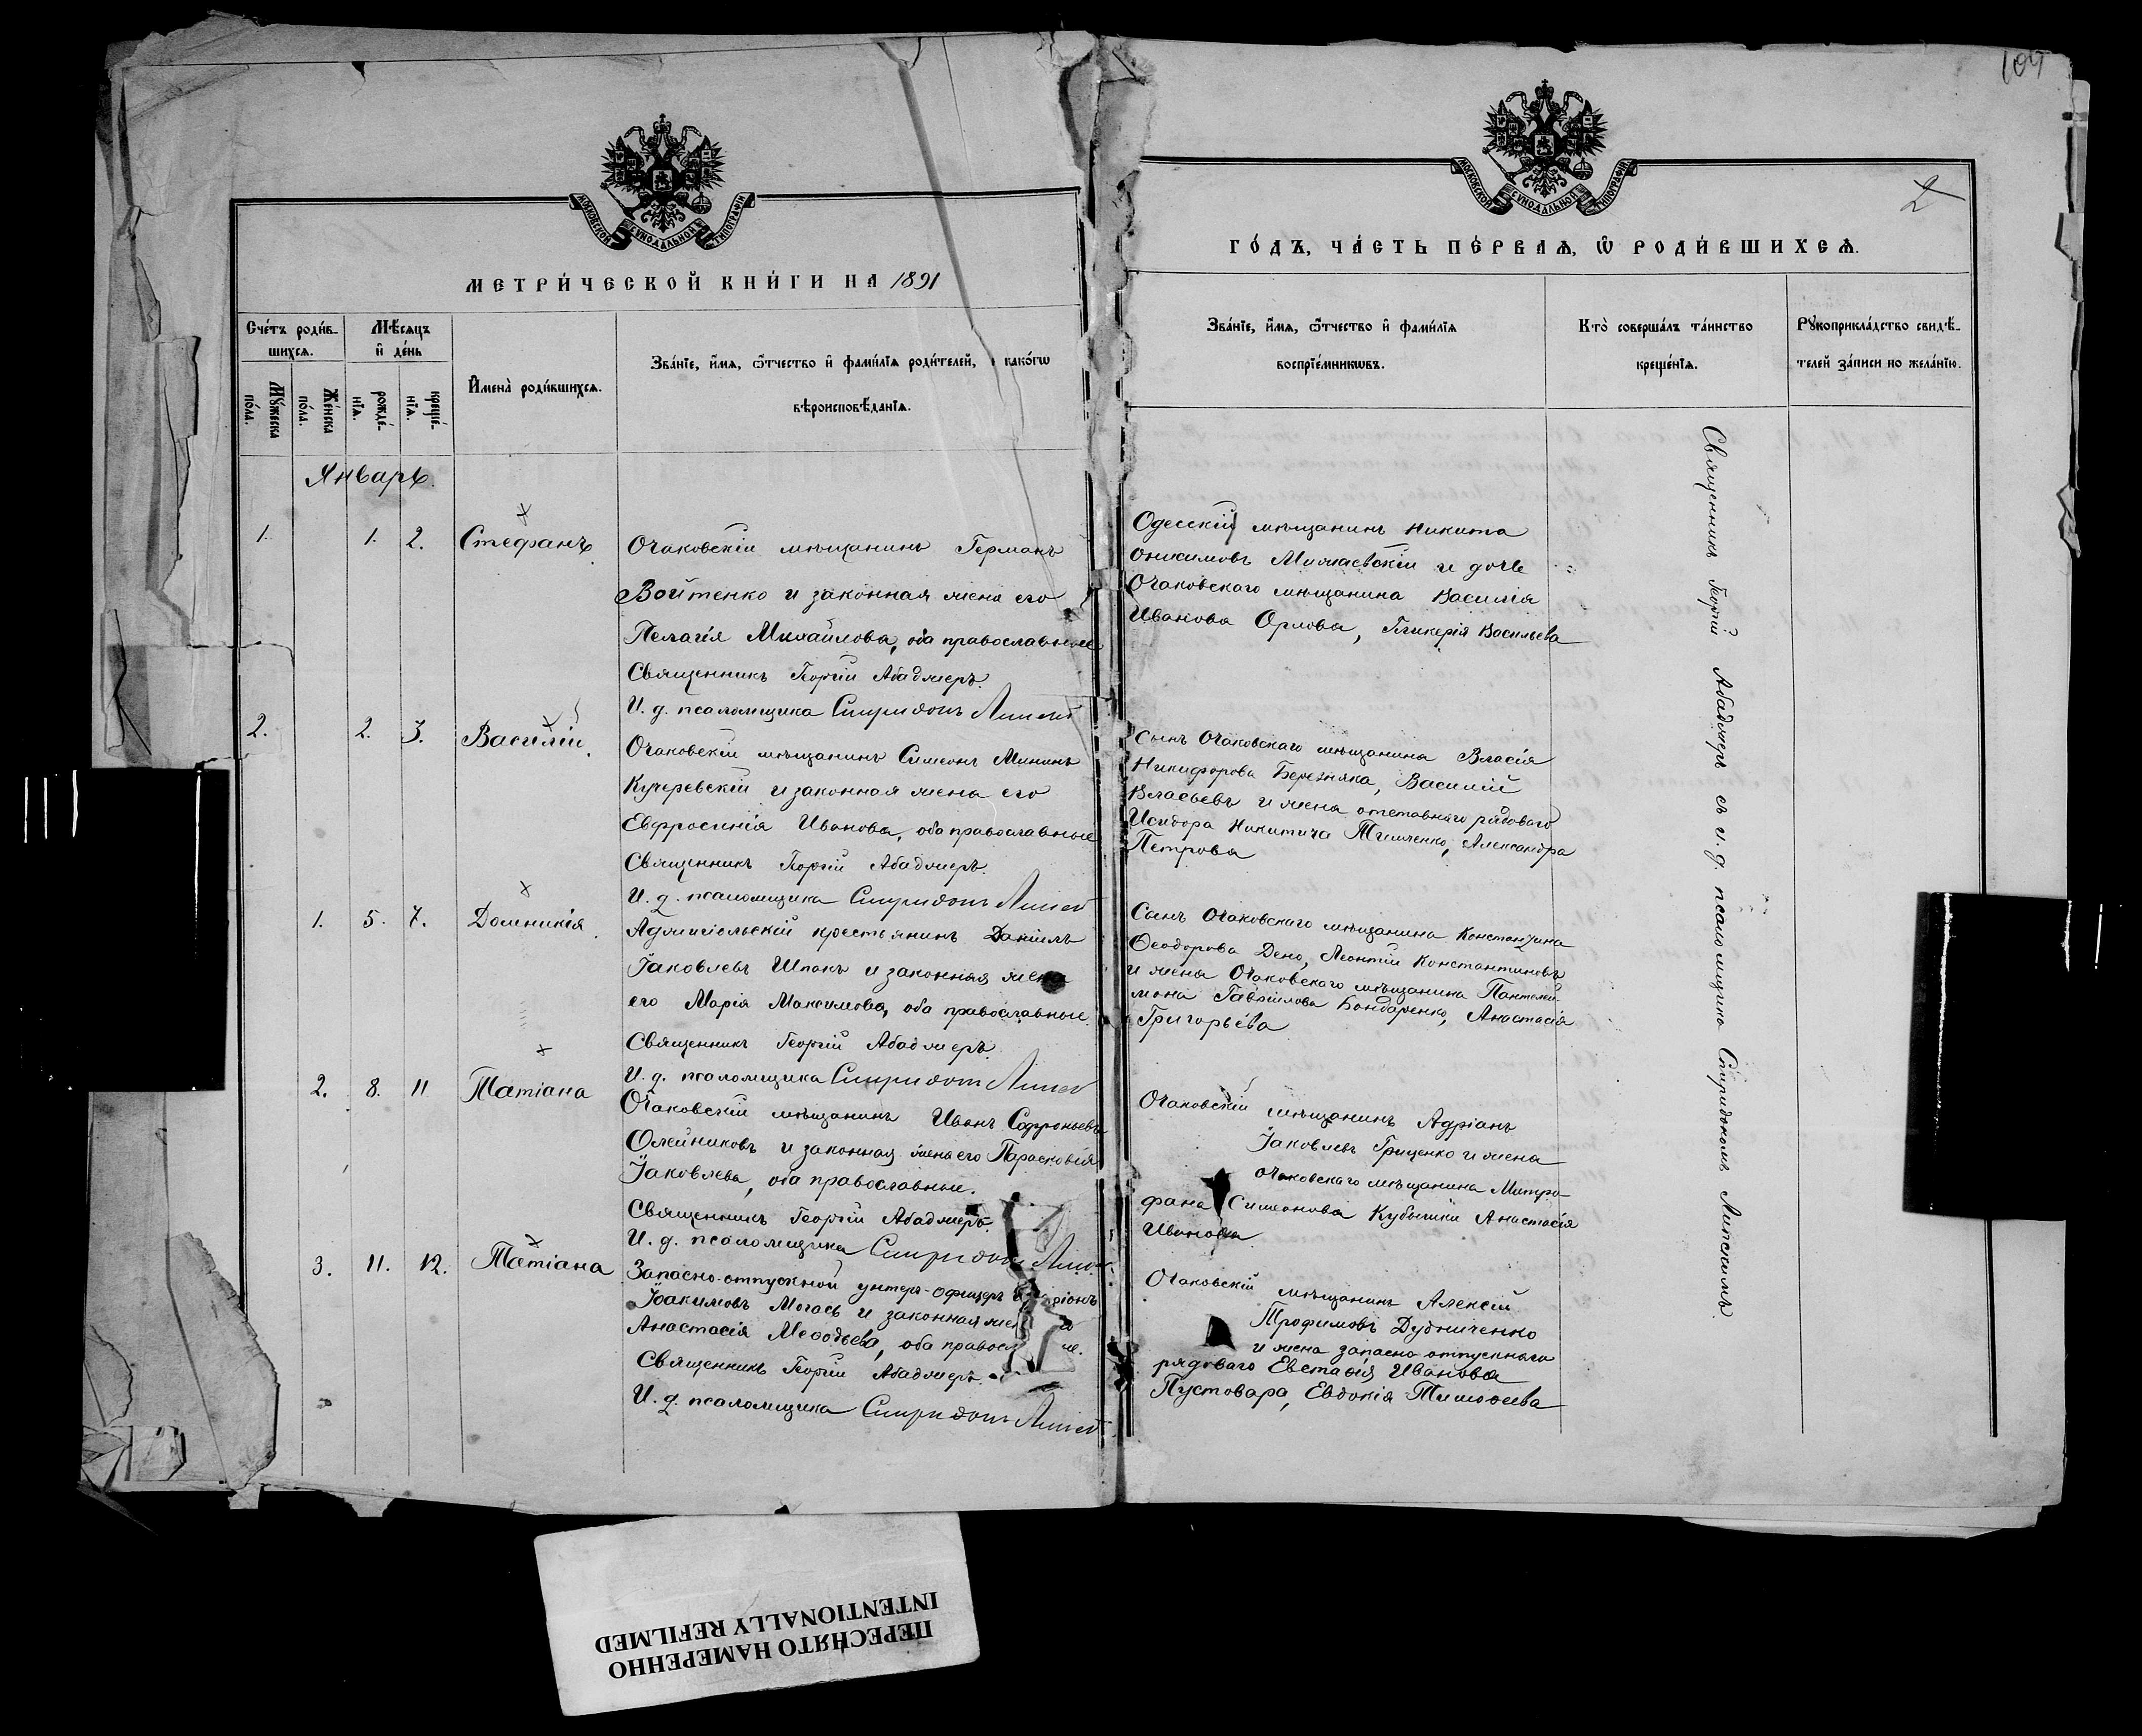 109
МОСКОВСКОЙ СУНОДАЛЬНОЙ ТИПОГРАФІИ
МЕТРИ́ЧЕСКОЙ КНИ́ГИ НА 1891
Сче́тъ роди́в-
шихсѧ.
Мѣ́сяцъ
и҆ де́нь
Мꙋ́жеска
по́ла.
Же́нска
по́ла.
рожде́-
нїѧ.
креще́-
нїѧ.
И҆мена̀ роди́вшихсѧ.
Зва́нїе, и҆́мѧ, ѻ҆́тчество и҆ фами́лїѧ роди́телей, и како́гѡ
вѣроисповѣ́данїѧ.
Январь.
1. 1. 2. Стефанъ.
Очаковскій мѣщанинъ Германъ
Войтенко и законная жена его
Пелагія Михайлова, оба православные
Священникъ Георгій Абаджеръ.
И. д. псаломщика Спиридонъ
2. 2. 3. Василій.
Очаковскій мѣщанинъ Симеонъ Мининъ
Кучеревскій и законная жена его
Евфросинія Иванова, оба православные
Священникъ Георгій Абаджеръ.
И. д. псаломщика Спиридонъ
1. 5. 7. Домникія.
крестьянинъ Даніилъ
Іаковлевъ Шпакъ и законная жена
его Марія Максимова, оба православные.
Священникъ Георгій Абаджеръ.
И. д. псаломщика Спиридонъ
2. 8. 11 Татіана
Очаковскій мѣщанинъ Иванъ Софроньевъ
Олейниковъ и законная жена его Парасковія
Іаковлева, оба православные.
Священникъ Георгій Абаджеръ.
И. д. псаломщика Спиридонъ
3. 11. 12. Татіана
Запасно-отпускной унтеръ-офицеръ
Іоакимовъ Могась и законная
Анастасія Меѳодьева, оба
Священникъ Георгій Абаджеръ.
И. д. псаломщика Спиридонъ
МОСКОВСКОЙ СУНОДАЛЬНОЙ ТИПОГРАФІИ
2
ГО́ДЪ, ЧА́СТЬ ПЕ́РВАѦ, Ѡ҆ РОДИ́ВШИХСѦ.
Зва́нїе, и҆́мѧ, ѻ҆́тчество и҆ фами́лїѧ
воспрїе́мникѡвъ.
Кто̀ соверша́лъ та́инство
креще́нїѧ.
Рꙋкоприкла́дство свидѣ́-
телей за́писи по жела́нїю.
Одесскій мѣщанинъ Никита
Онисимовъ и дочь
Очаковскаго мѣщанина Василія
Иванова Орлова, Гликерія Васильева
Сынъ Очаковскаго мѣщанина Власія
Никифорова Березняка, Василій
Власьевъ и жена отставнаго рядоваго
Исидора Никитича Тимченко, Александра
Петрова
Сынъ Очаковскаго мѣщанина Константина
Ѳеодорова Дено, Леонтій Константиновъ
и жена Очаковскаго мѣщанина Пантелей-
мона Гавріилова Бондаренко, Анастасія
Григорьева
Очаковскій мѣщанинъ Адріанъ
Іаковлевъ Гриценко и жена
очаковскаго мѣщанина Митро-
фана Симеонова Кубышки Анастасія
Иванова
Очаковскій мѣщанинъ Алексій
Трофимовъ Дудниченко
и жена запасно отпускнаго
рядоваго Евстафія Иванова
Пустовара, Евдокія Тимоѳеева
Священникъ Георгій Абаджеръ съ и. д. псаломщика Спиридономъ Липскимъ.
ПЕРЕСНЯТО НАМЕРЕННО
INTENTIONALLY REFILMED